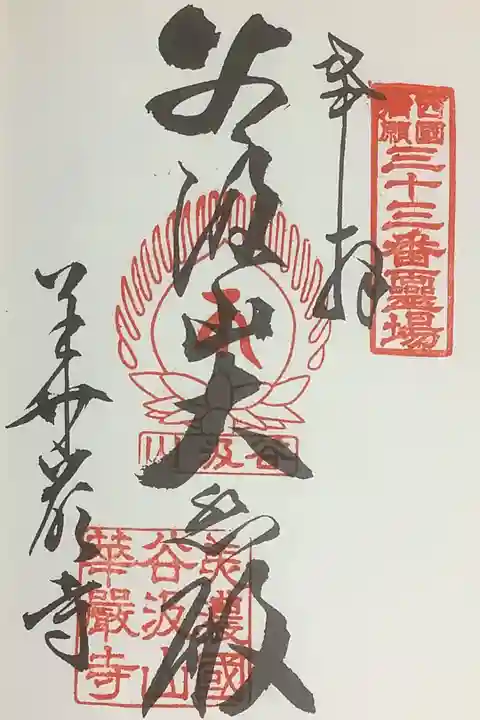 西國
満願
三十三番霊場
奉拝
谷汲山大悲殿
谷汲山
華厳寺
美濃國
谷汲山
華嚴寺